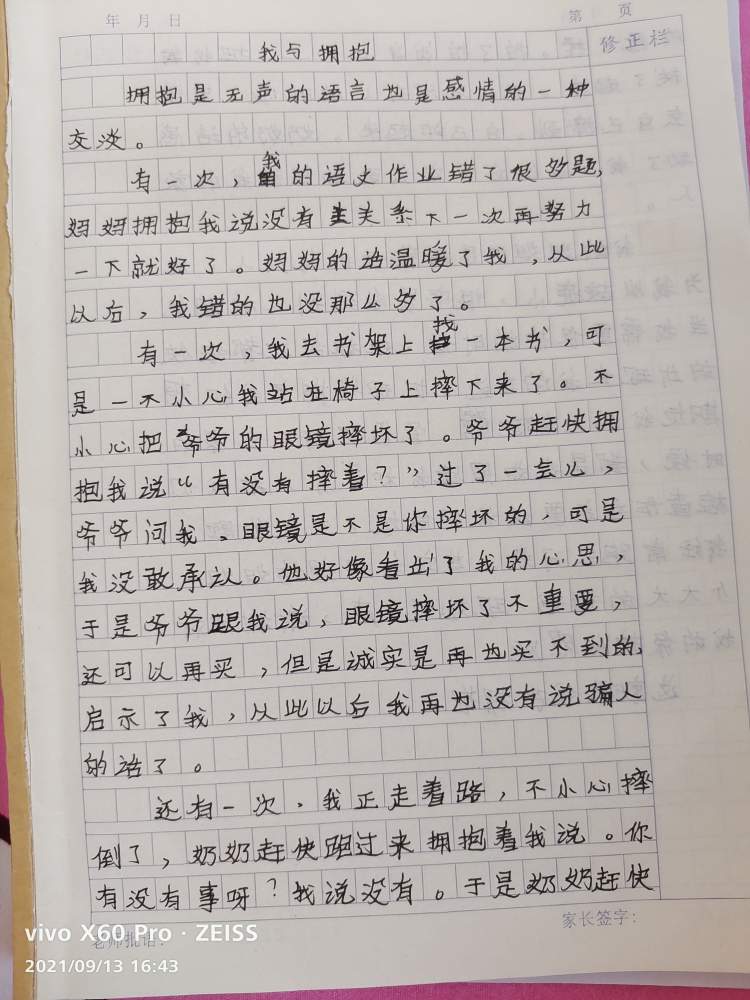 年 月 日
第 页
修正栏
我与拥抱
拥抱是无声的语言也是感情的一种
交谈。
有一次，我的语文作业错了很多题，
妈妈拥抱我说没有关系下一次再努力
一下就好了。妈妈的话温暖了我，从此
以后，我错的也没那么多了。
有一次，我去书架上找一本书，可
是一不小心我站在椅子上摔下来了。不
小心把爷爷的眼镜摔坏了。爷爷赶快拥
抱我说“有没有摔着？”过了一会儿，
爷爷问我、眼镜是不是你摔坏的，可是
我没敢承认。他好像看出了我的心思，
于是爷爷跟我说，眼镜摔坏了不重要，
还可以再买，但是诚实是再也买不到的，
启示了我，从此以后我再也没有说骗人
的话了。
还有一次，我正走着路，不小心摔
倒了，奶奶赶快跑过来拥抱着我说。你
有没有事呀？我说没有。于是奶奶赶快
家长签字：
老师批语：
vivo X60 Pro · ZEISS
2021/09/13 16:43